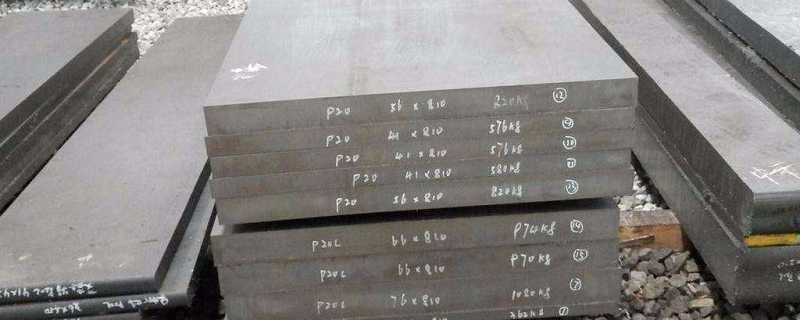 P20 56×810 820kg ⑫
P20 41×810 576kg ⑨
P20 41×810 576kg ⑩
P20 41×810 580kg ⑪
P20 56×810 820kg ⑬
P20L 66×810 P74kg ⑭
P20L 66×810 P70kg ⑮
P20L 76×810 1080kg
262kg